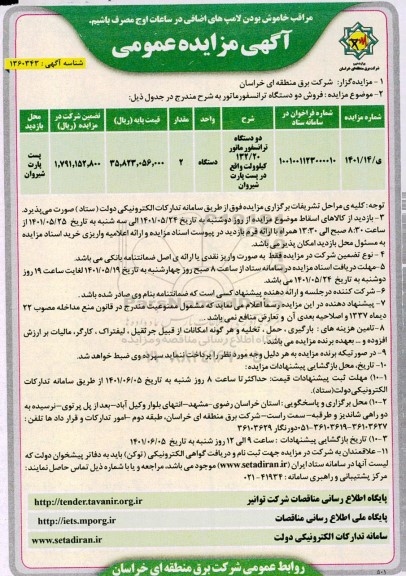 مراقب خاموش بودن لامپ های اضافی در ساعات اوج مصرف باشیم.
آگهی مزایده عمومی
شناسه آگهی : ۱۳۶۰۳۴۳
شرکت برق منطقه ای خراسان
۱ - مزایده‌گزار: شرکت برق منطقه ای خراسان
۲- موضوع مزایده : فروش دو دستگاه ترانسفورماتور به شرح مندرج در جدول ذیل:
شماره مزایده
شماره فراخوان در سامانه ستاد
شرح
واحد
مقدار
قیمت پایه (ریال)
تضمین شرکت در مزایده (ریال)
محل بازدید
ی/۱۴۰۱/۱۴
۱۰۰۱۰۰۱۱۲۳۰۰۰۰۱۰
دو دستگاه ترانسفورماتور ۱۳۲/۲۰ کیلوولت واقع در پست پارت شیروان
دستگاه
۲
۳۵,۸۲۳,۰۵۶,۰۰۰
۱,۷۹۱,۱۵۲,۸۰۰
پست پارت شیروان
توجه: کلیه ی مراحل تشریفات برگزاری مزایده فوق از طریق سامانه تدارکات الکترونیکی دولت ( ستاد ) صورت می‌پذیرد.
۳ - بازدید از کالاهای اسقاط موضوع مزایده از روز دوشنبه به تاریخ ۱۴۰۱/۰۵/۲۴ الی سه شنبه به تاریخ ۱۴۰۱/۰۵/۲۵ از
ساعت ۸:۳۰ صبح الی ۱۳:۳۰ همراه با ارائه فرم بازدید در پیوست اسناد مزایده و ارائه اعلامیه واریزی خرید اسناد مزایده
به مسئول محل بازدید امکان پذیر می باشد.
۴ - نوع تضمین شرکت در مزایده فقط به صورت واریز نقدی یا ارائه ی اصل ضمانتنامه بانکی می باشد.
۵-مهلت دریافت اسناد مزایده در سامانه ستاد از ساعت ۸ صبح روز چهارشنبه به تاریخ ۱۴۰۱/۰۵/۱۹ لغایت ساعت ۱۹ روز
دوشنبه به تاریخ ۱۴۰۱/۰۵/۲۴ می باشد.
۶- شرکت کننده در جلسه و ارائه دهنده پیشنهاد کسی است که ضمانتنامه بنام وی صادر شده باشد.
۷- پیشنهاد دهنده در این مزایده رسماً اعلام می نماید که مشمول ممنوعیت مندرج در قانون منع مداخله مصوب ۲۲
دیماه ۱۳۳۷ و اصلاحیه بعدی آن و تعارض منافع نمی باشد.
۸-تامین هزینه های : بارگیری ، حمل ، تخلیه و هر گونه امکانات از قبیل جرثقیل ، لیفتراک ، کارگر، مالیات بر ارزش
افزوده و ... بعهده برنده مزایده می باشد.
۹- در صورتیکه برنده مزایده به هر دلیل وجه مورد نظر را پرداخت ننماید سپرده وی ضبط خواهد شد.
۱۰- تاریخ، محل بازگشایی پیشنهادات مزایده:
۱-۱۰) مهلت ثبت پیشنهادات قیمت: حداکثر تا ساعت ۸ روز شنبه به تاریخ ۱۴۰۱/۰۶/۰۵ از طریق سامانه تدارکات
الکترونیکی دولت(ستاد).
۲-۱۰) محل برگزاری و پاسخگویی : استان خراسان رضوی-مشهد-انتهای بلوار وکیل آباد-بعد از پل پرتوی-نرسیده به
دو راهی شاندیز و طرقبه- سمت راست-شرکت برق منطقه ای خراسان، طبقه دوم -امور تدارکات و قرار داد ها تلفن :
۳-۱۰) تاریخ بازگشایی پیشنهادات : ساعت ۹ الی ۱۲ روز شنبه به تاریخ ۱۴۰۱/۰۶/۰۵
۱۱- علاقمندان به شرکت در مزایده جهت ثبت نام و دریافت گواهی الکترونیکی (توکن) باید به دفاتر پیشخوان دولت که
لیست آنها در سامانه ستاد ایران (www.setadiran.ir) موجود می باشد، مراجعه و یا با شماره ذیل تماس حاصل نمایند:
مرکز پشتیبانی و راهبری سامانه : ۴۱۹۳۴-۰۲۱
پایگاه اطلاع رسانی مناقصات شرکت توانیر
http://tender.tavanir.org.ir
پایگاه ملی اطلاع رسانی مناقصات
http://iets.mporg.ir
سامانه تدارکات الکترونیکی دولت
www.setadiran.ir
روابط عمومی شرکت برق منطقه ای خراسان